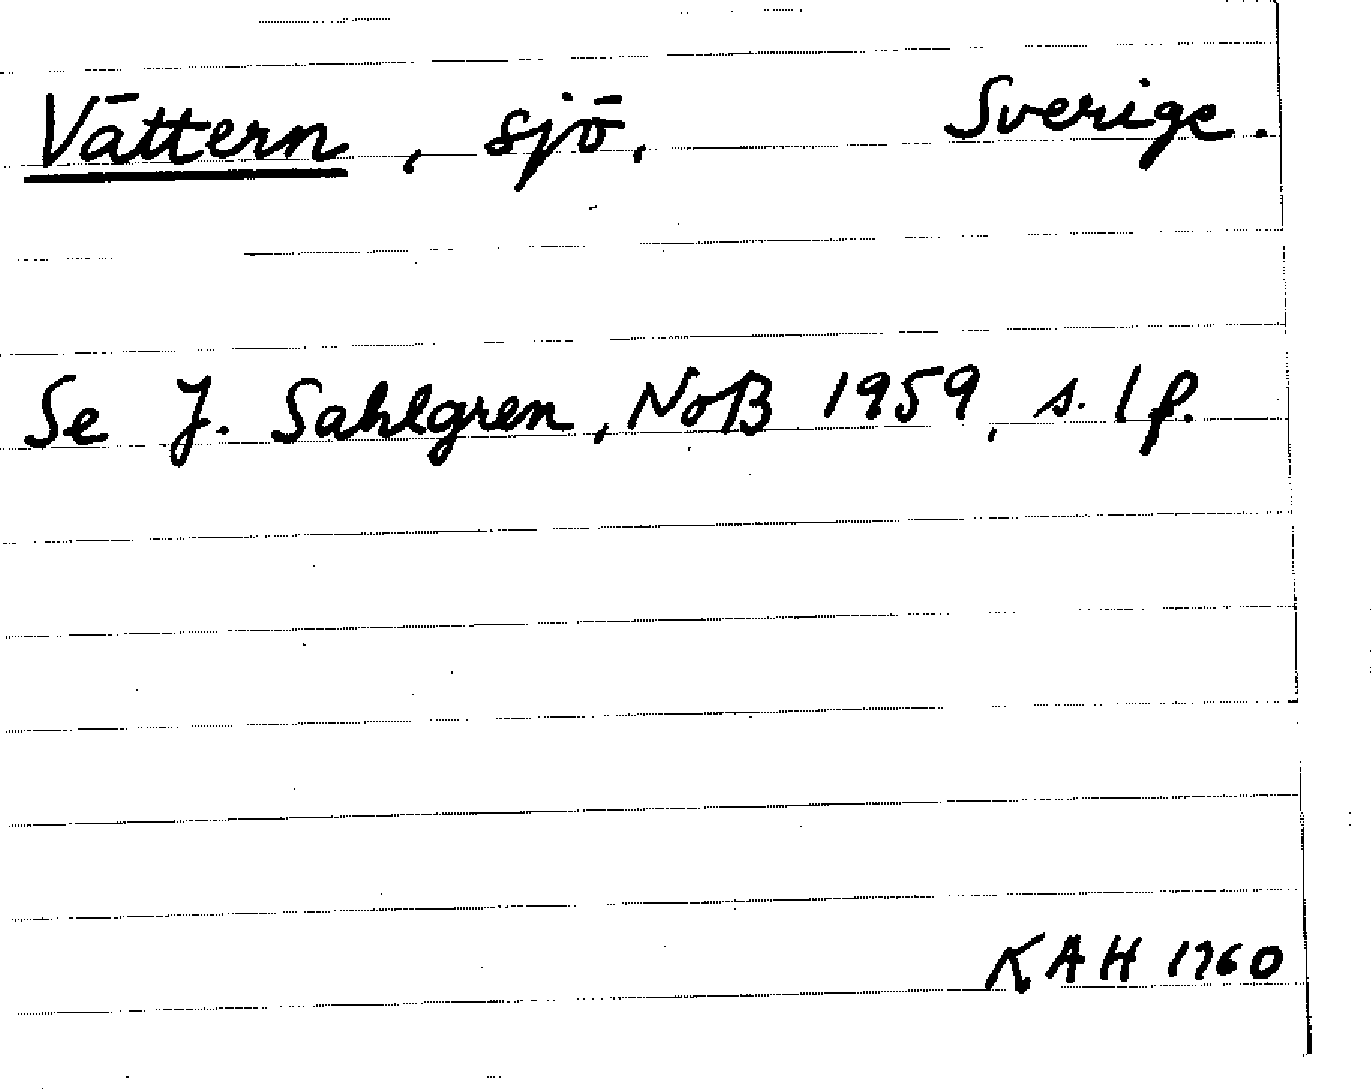 Vättern, sjö. Sverige.
Se J. Sahlgren, NoB 1959, s. 1 f.
KAH 1960